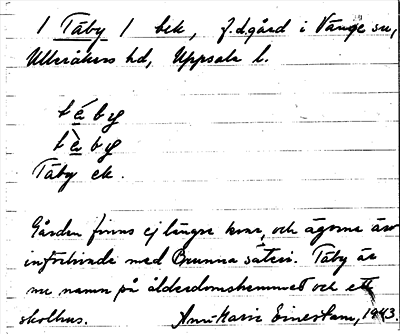 1 Täby / bek, f.d. gård i Vänge sn,
Ulleråkers hd, Uppsala l.
té by
tè by
Täby ek.
Gården finns ej längre kvar, och ägorna äro
införlivade med Brunna säteri. Täby är
nu namn på ålderdomshemmet och ett
skolhus. Ann-Marie Einerstam, 1943.